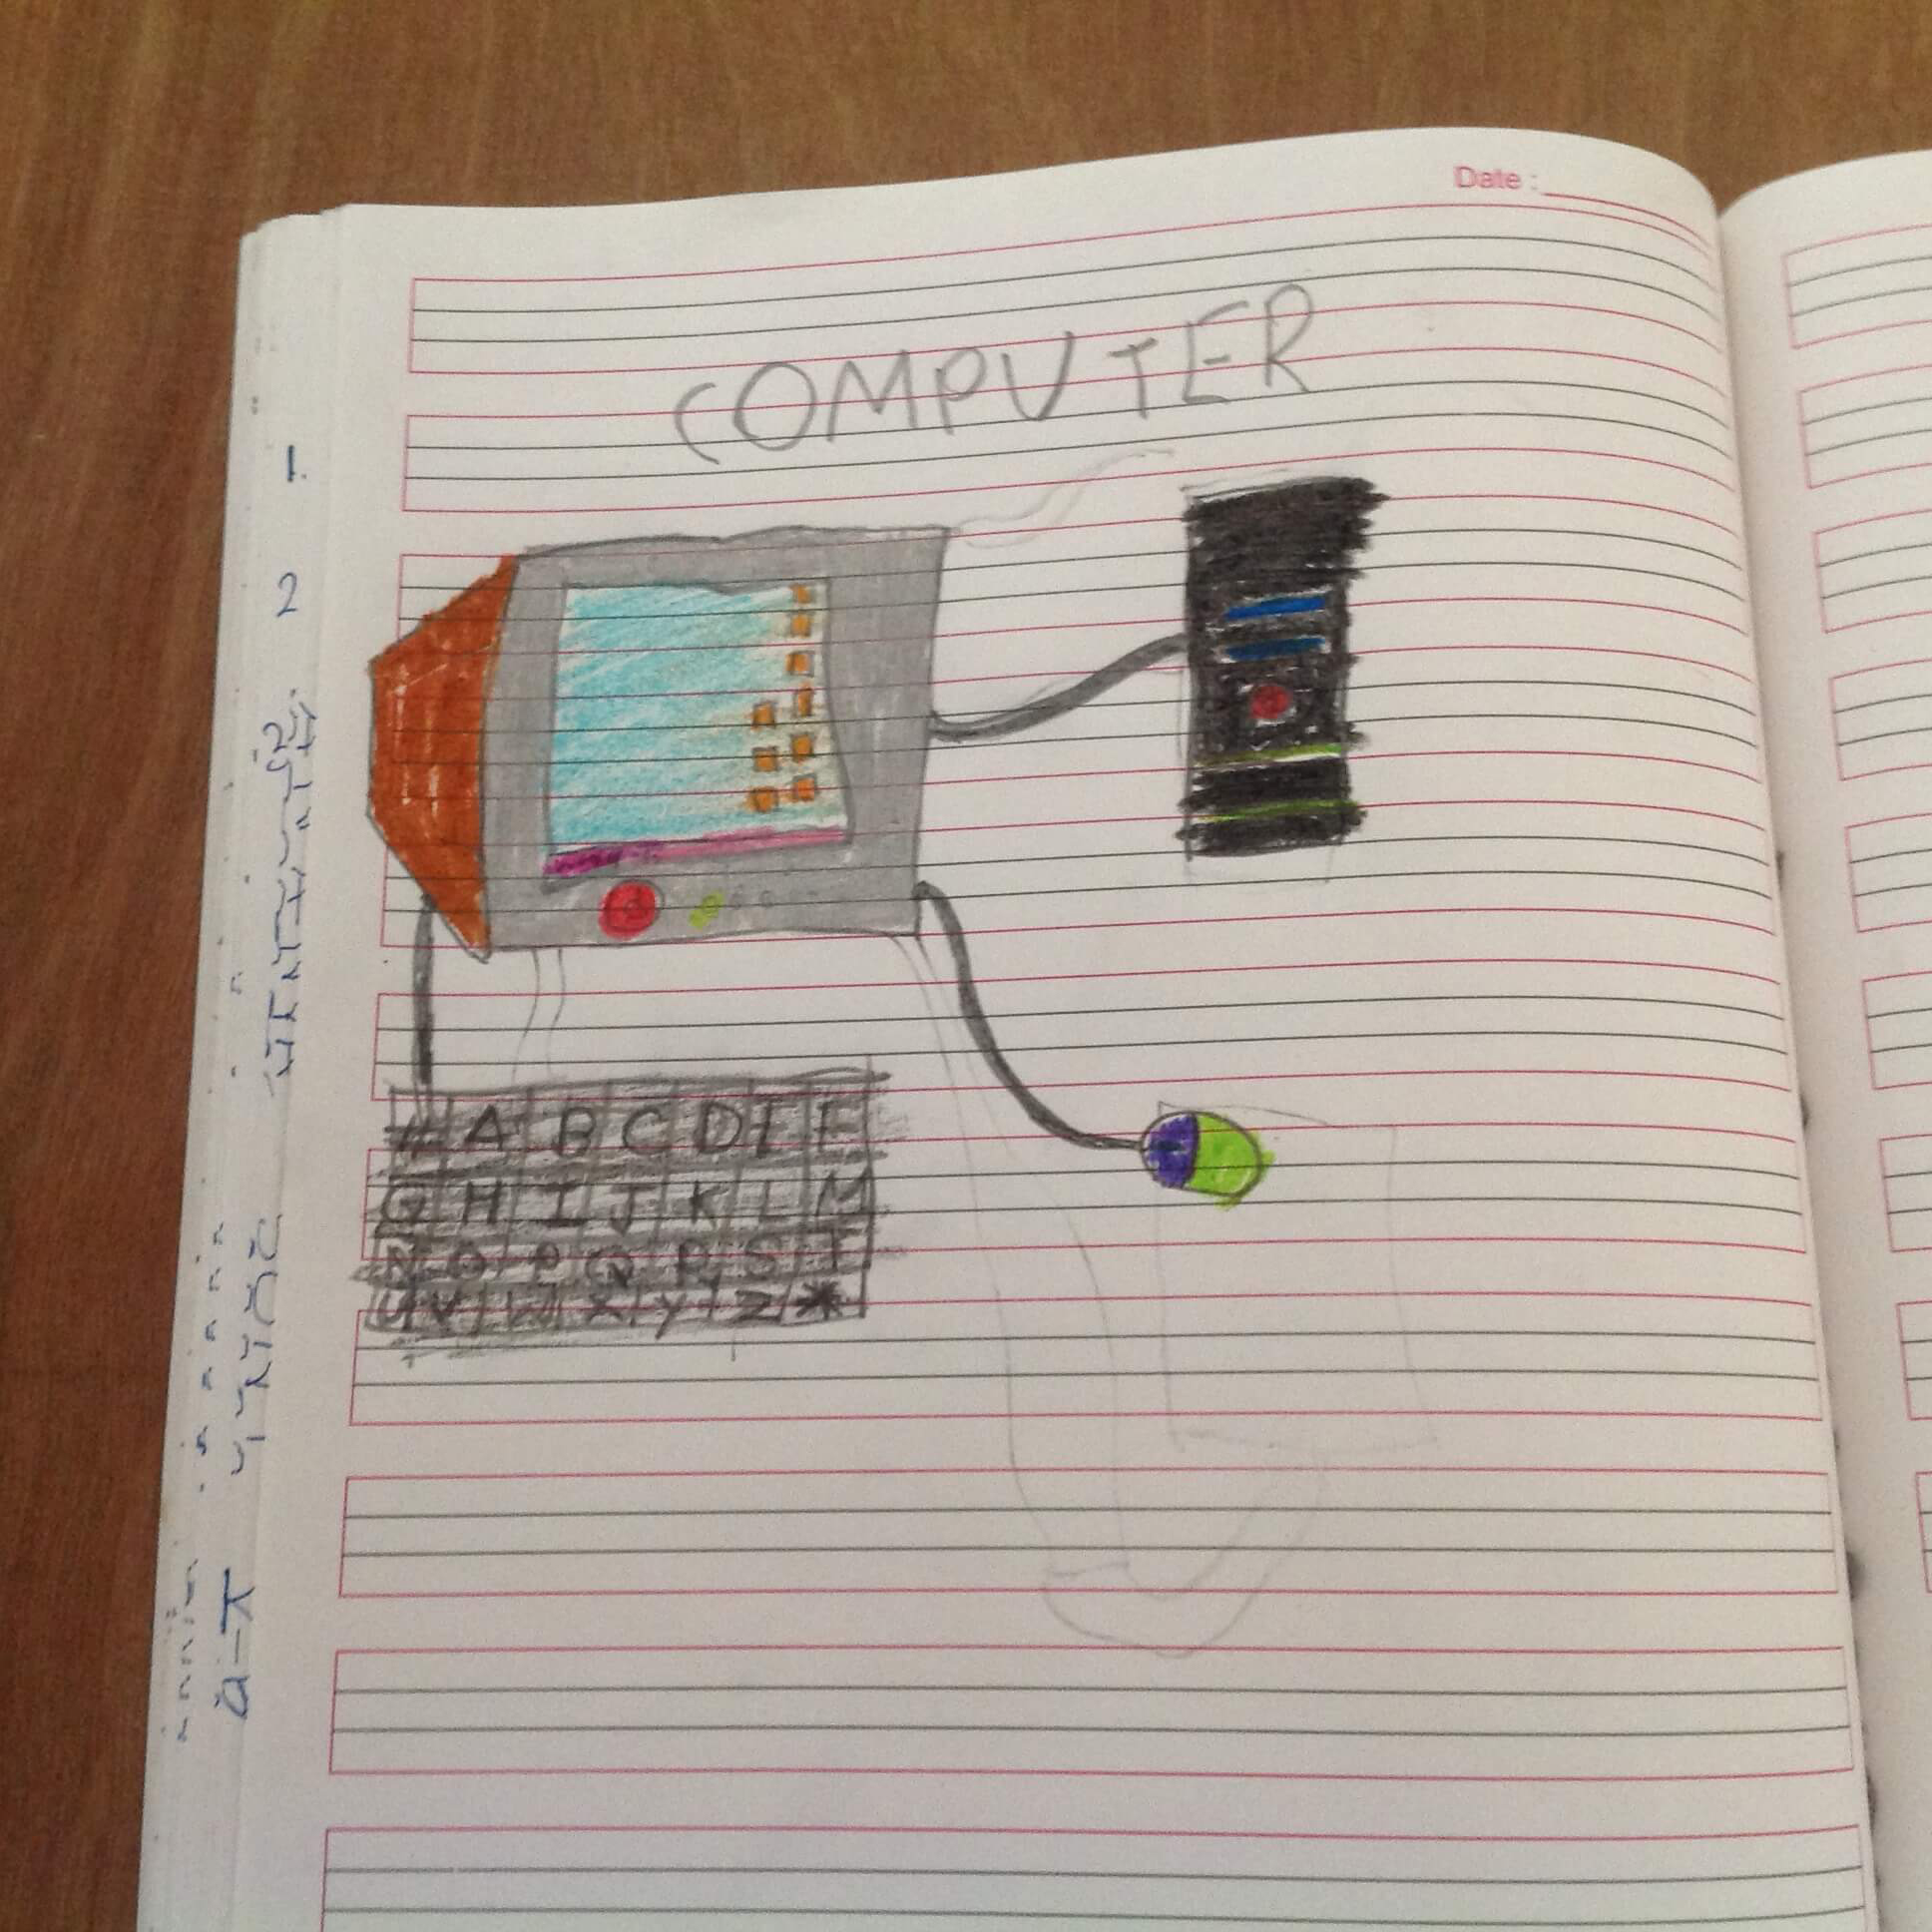 Date :
COMPUTER
# A B C D E F
G H I J K L M
N O P Q R S T
U V W X Y Z *
1
2